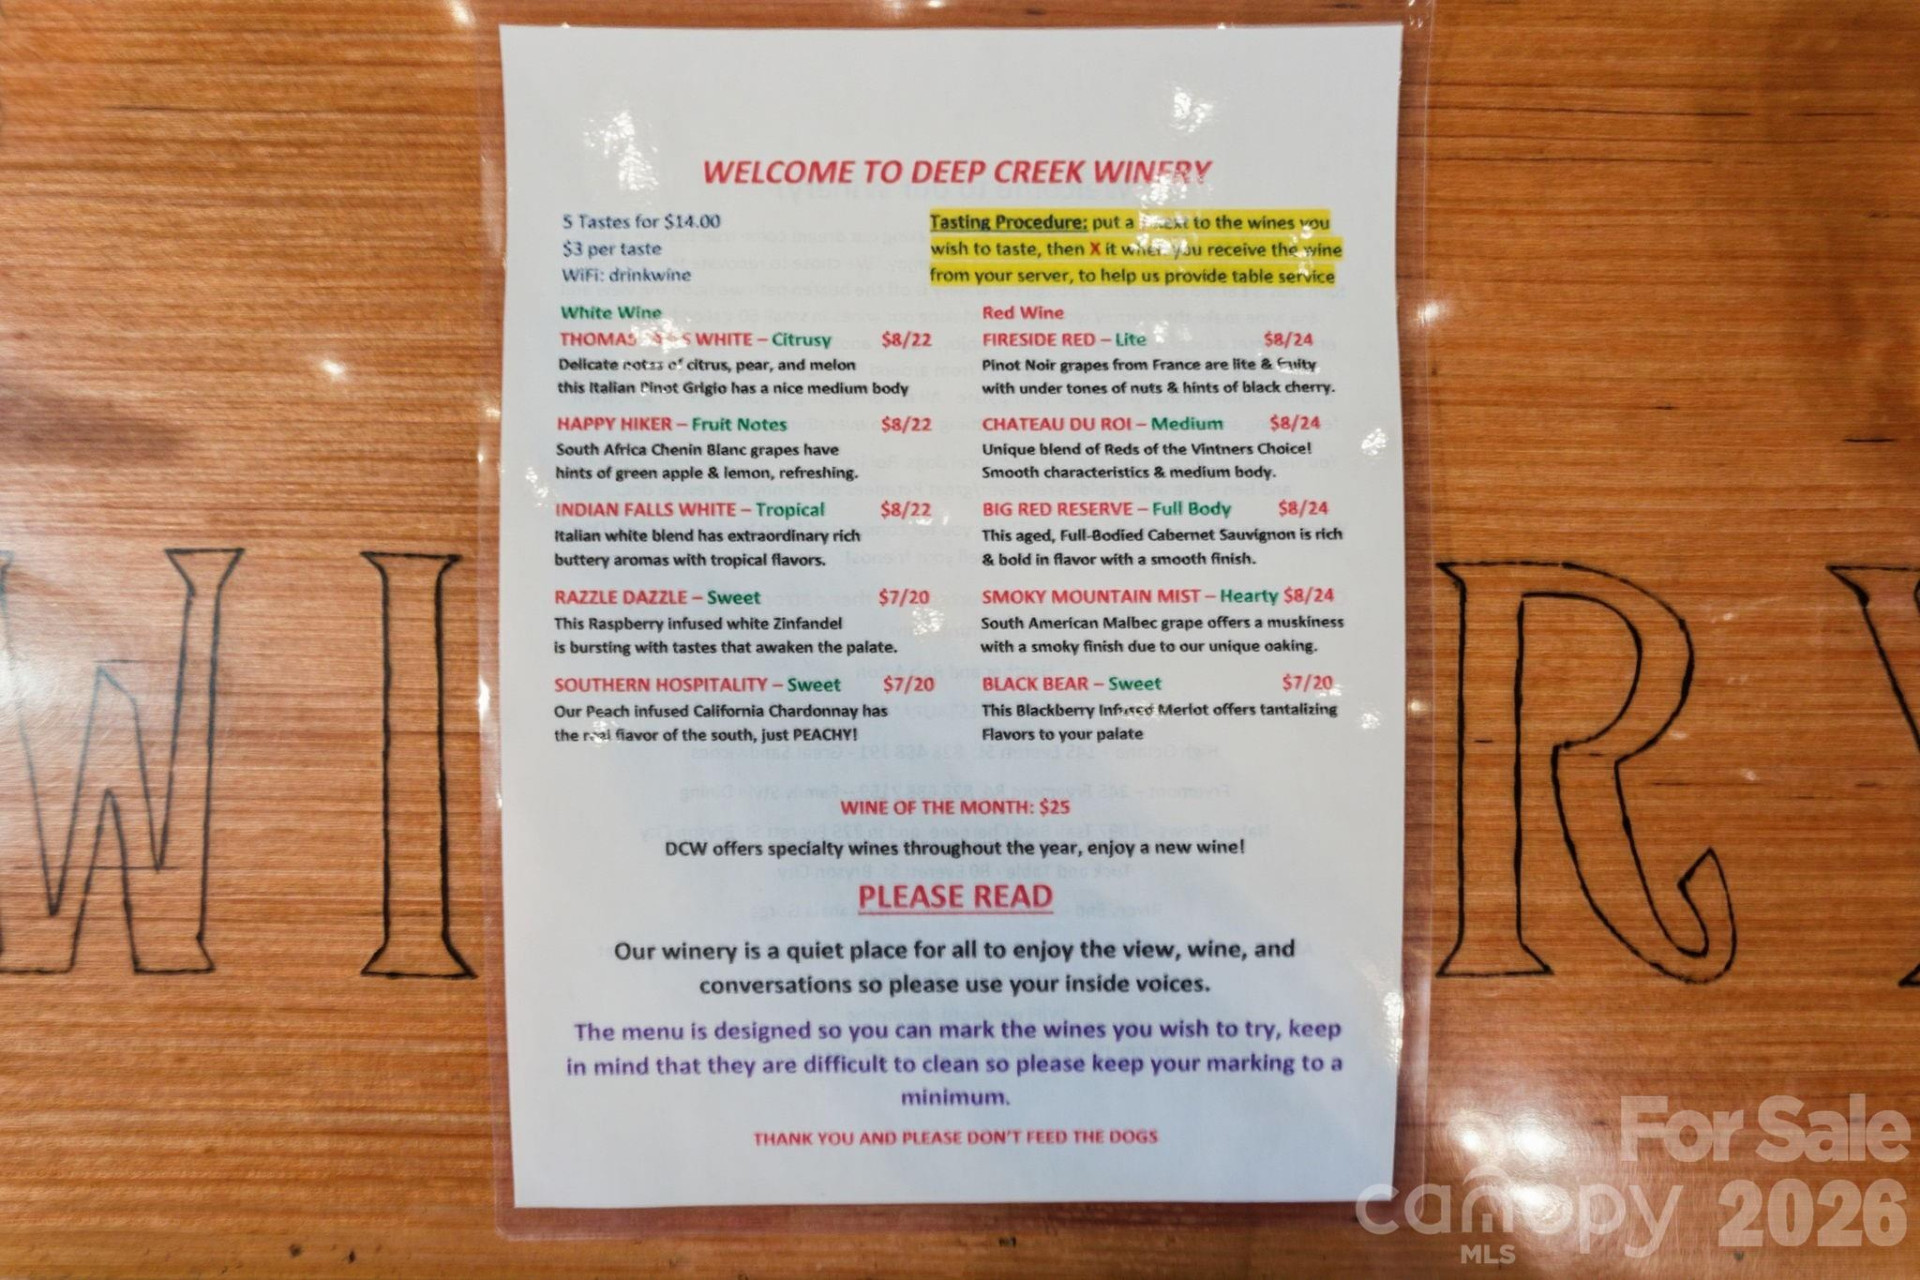 WELCOME TO DEEP CREEK WINERY
5 Tastes for $14.00
$3 per taste
WiFi: drinkwine
Tasting Procedure: put a to the wines you
wish to taste, then X it when you receive the wine
from your server, to help us provide table service
White Wine
THOMAS WHITE – Citrusy $8/22
Delicate notes of citrus, pear, and melon
this Italian Pinot Grigio has a nice medium body
HAPPY HIKER – Fruit Notes $8/22
South Africa Chenin Blanc grapes have
hints of green apple & lemon, refreshing.
INDIAN FALLS WHITE – Tropical $8/22
Italian white blend has extraordinary rich
buttery aromas with tropical flavors.
RAZZLE DAZZLE – Sweet $7/20
This Raspberry infused white Zinfandel
is bursting with tastes that awaken the palate.
SOUTHERN HOSPITALITY – Sweet $7/20
Our Peach infused California Chardonnay has
the real flavor of the south, just PEACHY!
Red Wine
FIRESIDE RED – Lite $8/24
Pinot Noir grapes from France are lite & fruity
with under tones of nuts & hints of black cherry.
CHATEAU DU ROI – Medium $8/24
Unique blend of Reds of the Vintners Choice!
Smooth characteristics & medium body.
BIG RED RESERVE – Full Body $8/24
This aged, Full-Bodied Cabernet Sauvignon is rich
& bold in flavor with a smooth finish.
SMOKY MOUNTAIN MIST – Hearty $8/24
South American Malbec grape offers a muskiness
with a smoky finish due to our unique oaking.
BLACK BEAR – Sweet $7/20
This Blackberry Infused Merlot offers tantalizing
Flavors to your palate
WINE OF THE MONTH: $25
DCW offers specialty wines throughout the year, enjoy a new wine!
PLEASE READ
Our winery is a quiet place for all to enjoy the view, wine, and
conversations so please use your inside voices.
The menu is designed so you can mark the wines you wish to try, keep
in mind that they are difficult to clean so please keep your marking to a
minimum.
THANK YOU AND PLEASE DON'T FEED THE DOGS
WI RY
For Sale
canopy 2026
MLS